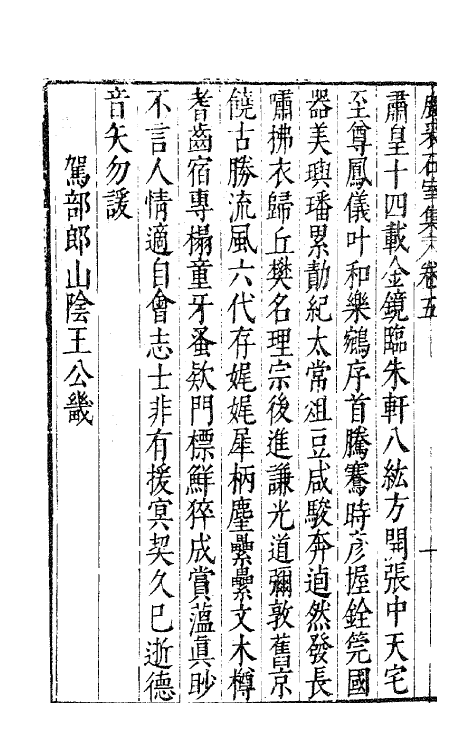 石室集 卷五
肅皇十四載金鏡臨朱軒八紘方開張中天宅
至尊鳳儀叶和樂鵷序首騰騫時彥握銓筦國
器美璵璠累勣紀太常俎豆咸駿奔逌然發長
嘯拂衣歸丘樊名理宗後進謙光道彌敦舊京
饒古勝流風六代存娓娓犀柄麈纍纍文木樽
耆齒宿專榻童牙蚤欵門標鮮猝成賞蘊真眇
不言人情適自會志士非有援冥契久已逝德
音矢勿諼
駕部郎山陰王公畿